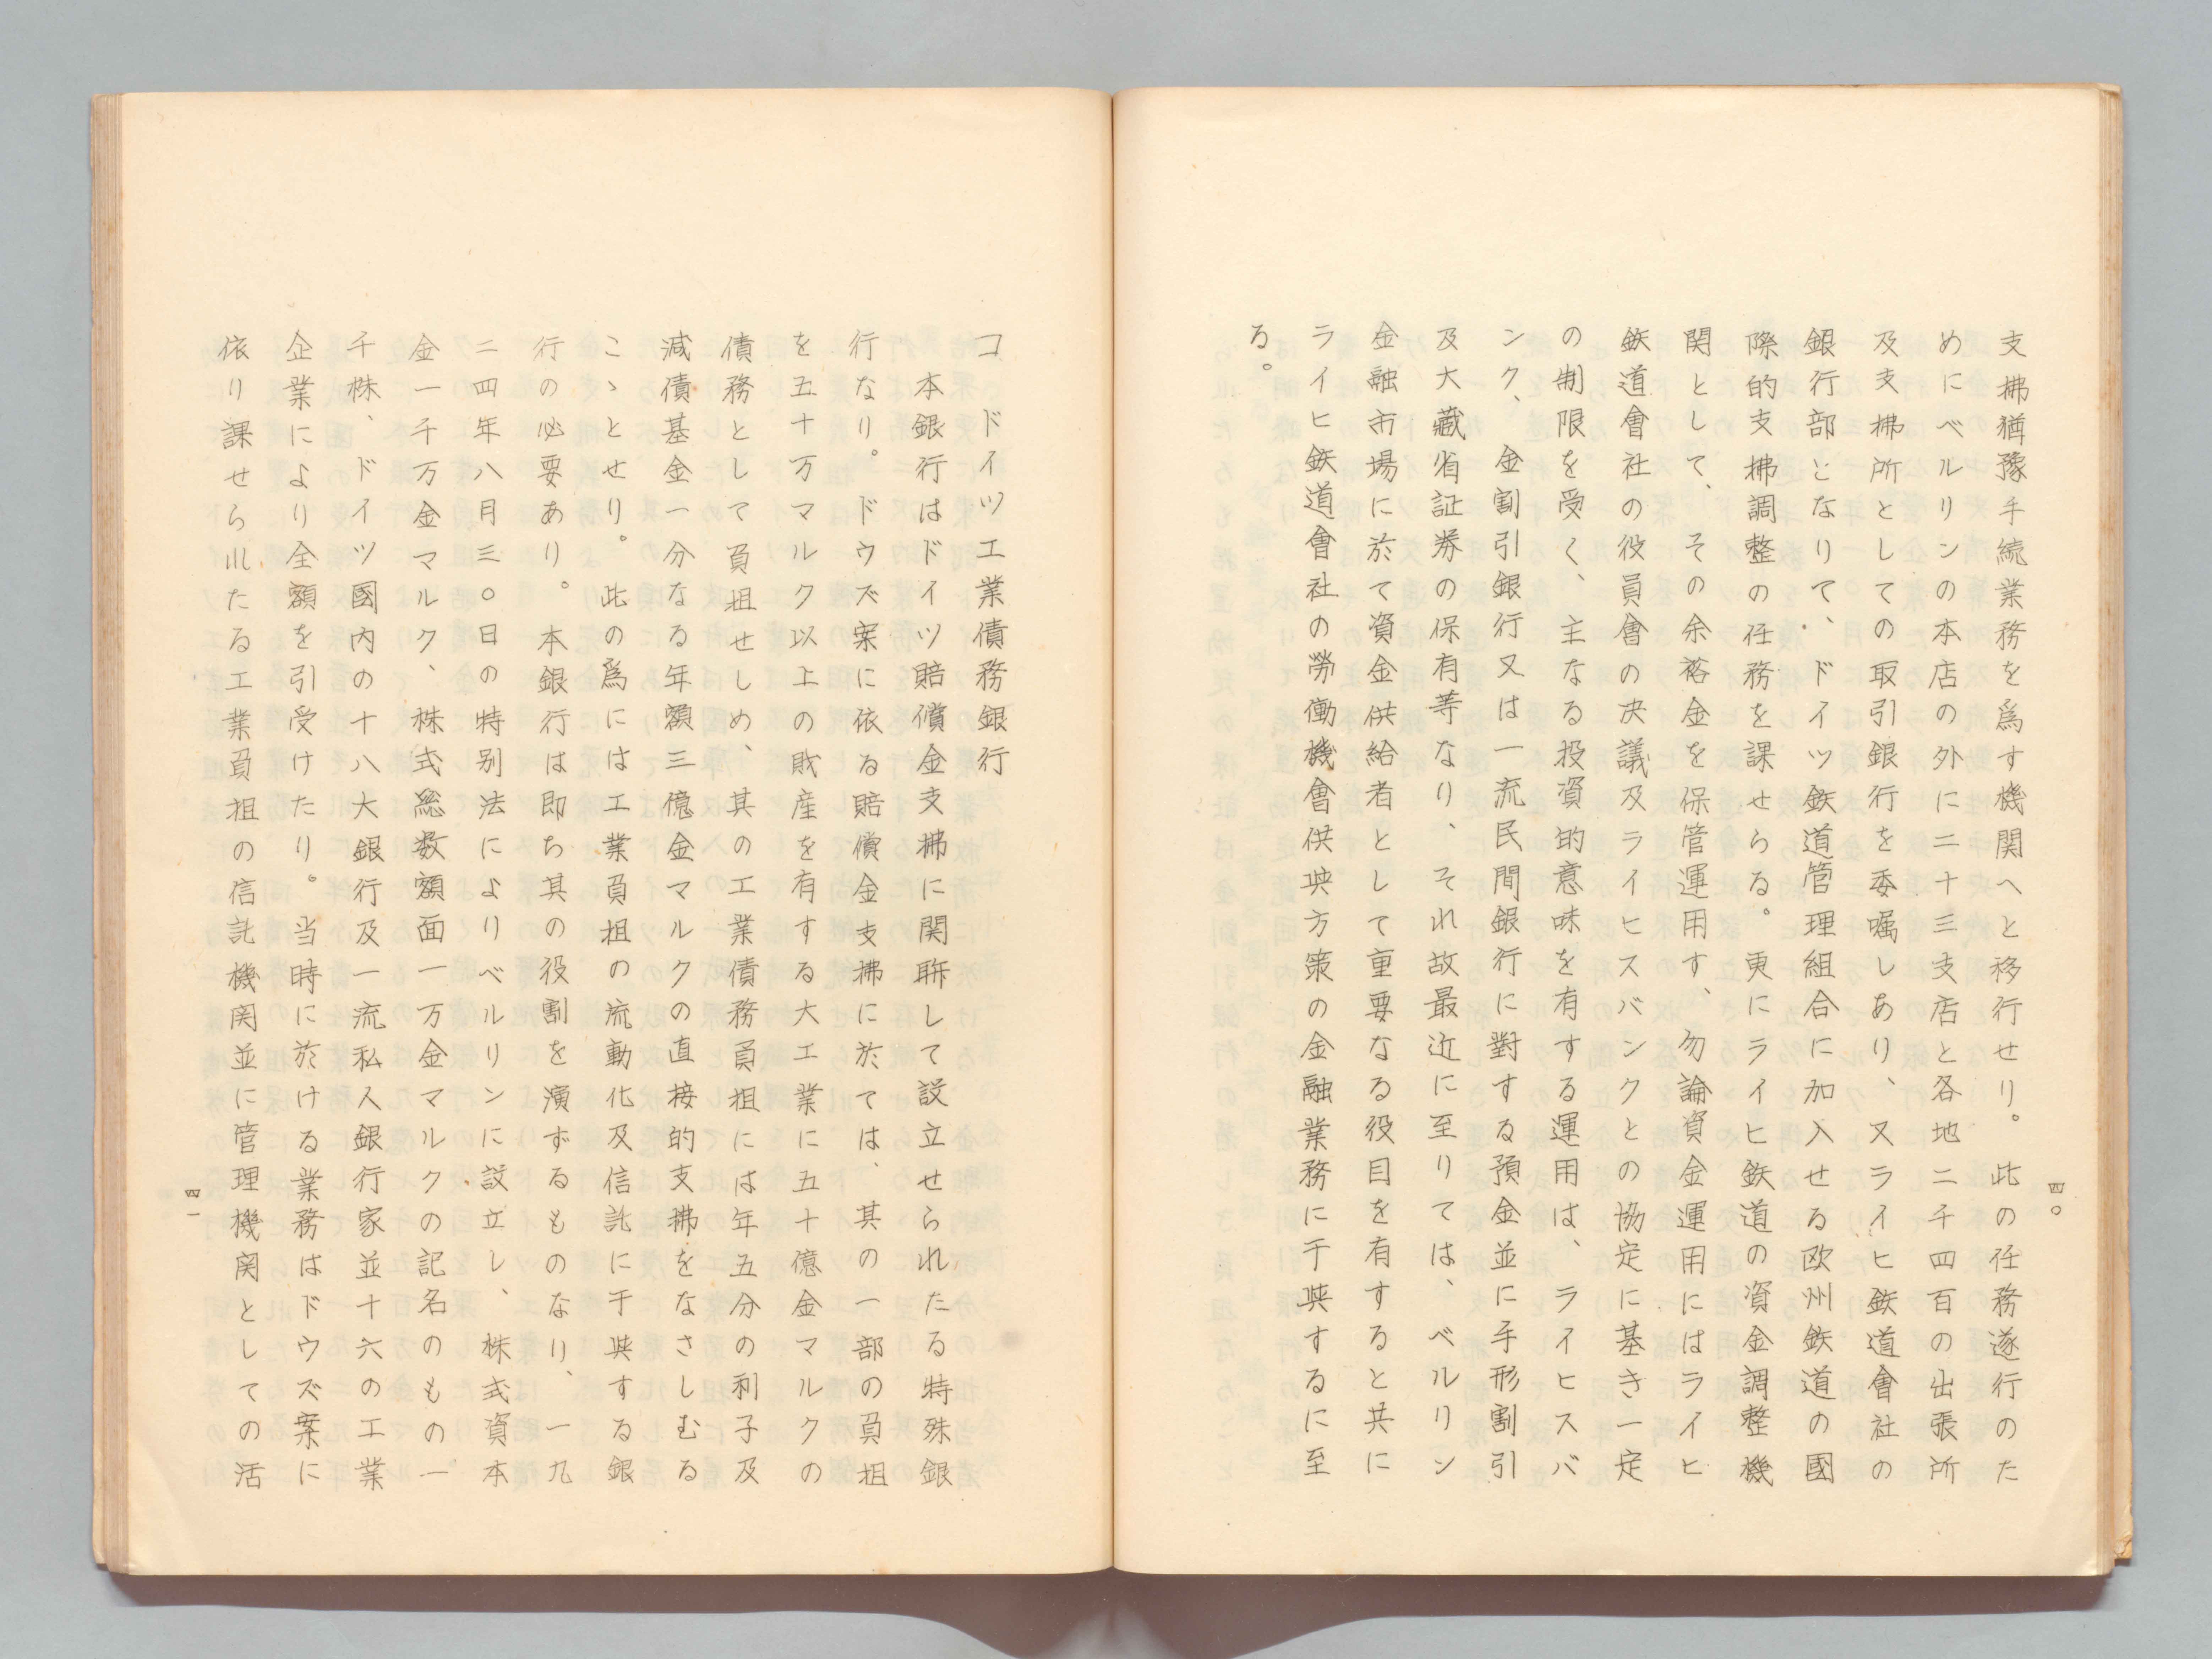 四〇
支拂猶豫手続業務を爲す機関へと移行せり。此の任務遂行のた
めにベルリンの本店の外に二十三支店と各地二千四百の出張所
及支拂所としての取引銀行を委嘱しあり、又ライヒ鉄道會社の
銀行部となりて、ドイツ鉄道管理組合に加入せる欧州鉄道の國
際的支拂調整の任務を課せらる。更にライヒ鉄道の資金調整機
関として、その余裕金を保管運用す、勿論資金運用にはライヒ
鉄道會社の役員會の決議及ライヒスバンクとの協定に基き一定
の制限を受く、主なる投資的意味を有する運用は、ライヒスバ
ンク、金割引銀行又は一流民間銀行に對する預金並に手形割引
及大藏省証券の保有等なり、それ故最近に至りては、ベルリン
金融市場に於て資金供給者として重要なる役目を有すると共に
ライヒ鉄道會社の勞働機會供与方策の金融業務に干与するに至
る。
コ　ドイツ工業債務銀行
本銀行はドイツ賠償金支拂に関聨して設立せられたる特殊銀
行なり。ドウズ案に依る賠償金支拂に於ては、其の一部の負担
を五十万マルク以上の財産を有する大工業に五十億金マルクの
債務として負担せしめ、其の工業債務負担には年五分の利子及
減債基金一分なる年額三億金マルクの直接的支拂をなさしむる
こゝとせり。此の爲には工業負担の流動化及信託に干与する銀
行の必要あり。本銀行は即ち其の役割を演ずるものなり、一九
二四年八月三〇日の特別法によりベルリンに設立し、株式資本
金一千万金マルク、株式総数額面一万金マルクの記名のもの一
千株、ドイツ國内の十八大銀行及一流私人銀行家並十六の工業
企業により全額を引受けたり。当時に於ける業務はドウズ案に
依り課せられたる工業負担の信託機関並に管理機関としての活
四一